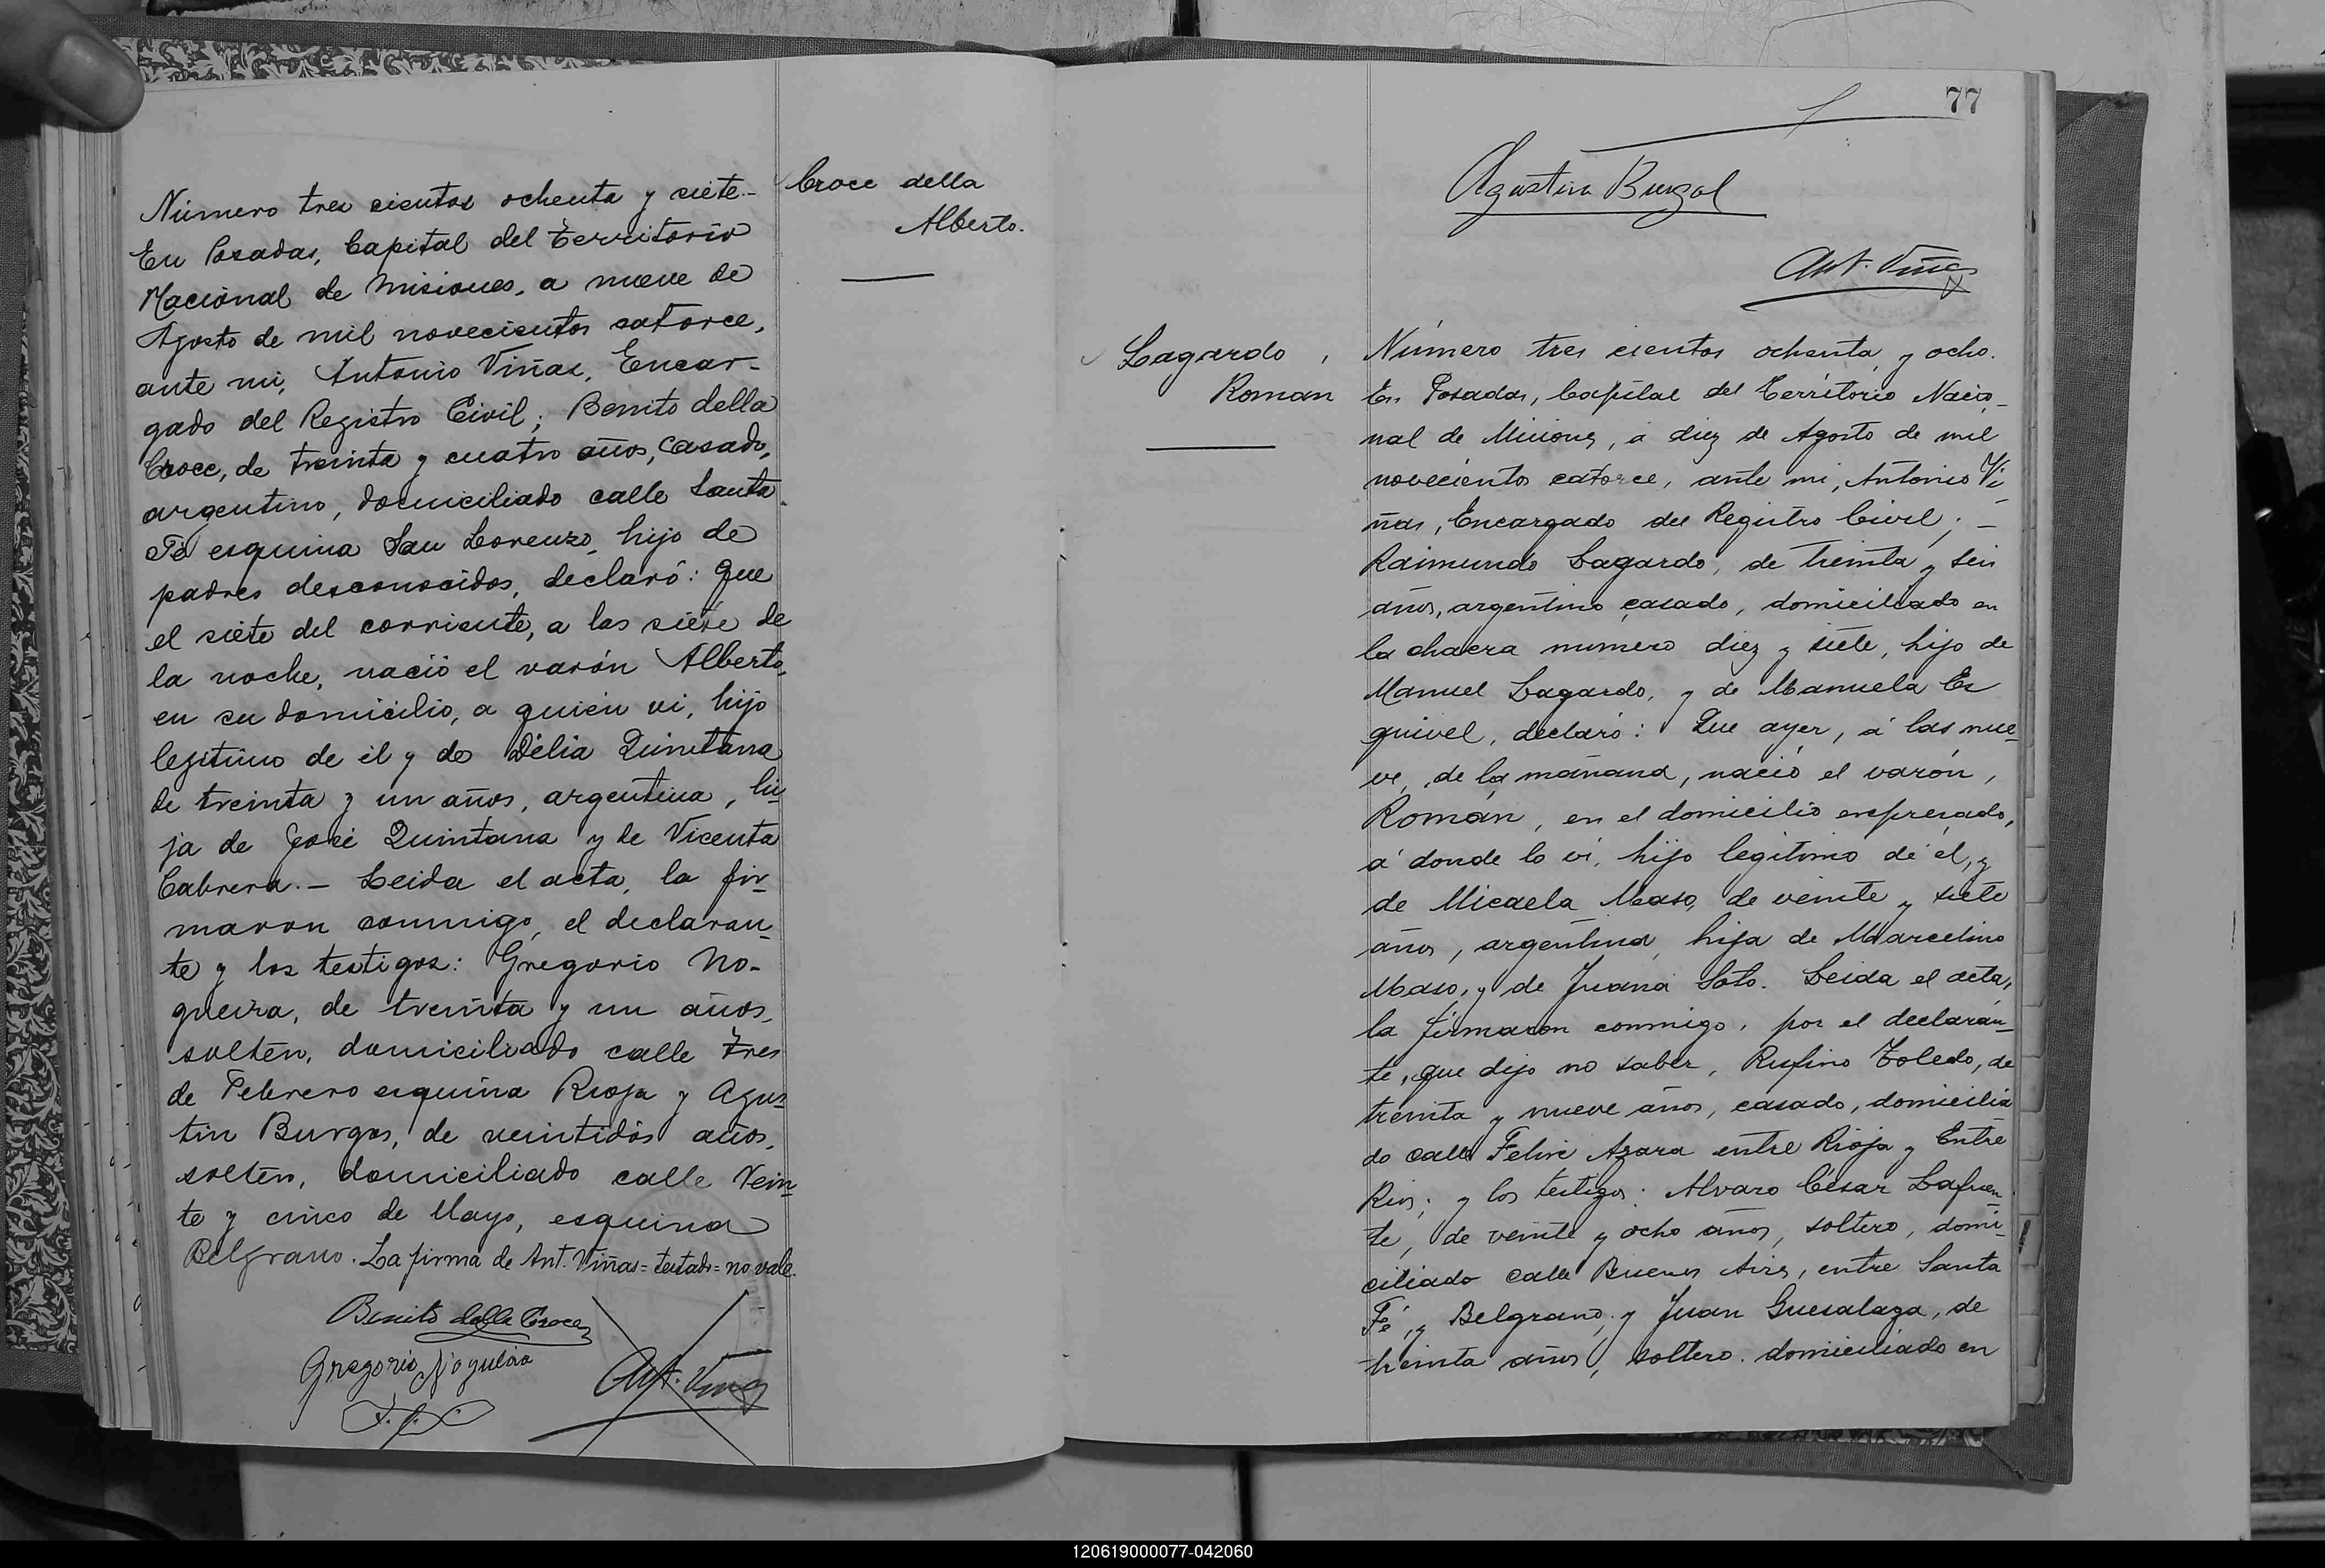 Croce della
Alberto.
Número tres cientos ochenta y siete.-
En Posadas, Capital del Territorio
Nacional de Misiones, a nueve de
Agosto de mil novecientos catorce,
ante mi, Antonio Viñas, Encar-
gado del Registro Civil; Benito della
Croce, de treinta y cuatro años, casado,
argentino, domiciliado calle Santa
Fé esquina San Lorenzo, hijo de
padres desconocidos, declaró: Que
el siete del corriente, a las siete de
la noche, nació el varón Alberto,
en su domicilio, a quien vi, hijo
legitimo de él y de Délia Quintana
de treinta y un años, argentina, hi-
ja de José Quintana y de Vicenta
Cabrera.- Leida el acta, la fir-
maron conmigo, el declaran-
te y los testigos: Gregorio No-
gueira, de treinta y un años,
soltero, domiciliado calle Tres
de Febrero esquina Rioja y Agus-
tin Burgos, de veintidós años,
soltero, domiciliado calle Vein-
te y cinco de Mayo, esquina
Belgrano. La firma de Ant. Viñas=testado=no vale.
Benito della Croce
Gregorio Nogueira
Ant. Viñas
77
Agustin Burgos
Ant. Viñas
Lagardo,
Roman
Número tres cientos ochenta y ocho.
En Posadas, Capital del Territorio Nacio-
nal de Misiones, á diez de Agosto de mil
novecientos catorce, ante mi, Antonio Vi-
ñas, Encargado del Registro Civil; -
Raimundo Lagardo, de treinta y seis
años, argentino casado, domiciliado en
la chacra numero diez y siete, hijo de
Manuel Lagardo, y de Manuela Es
quivel, declaró: Que ayer, á las nue-
ve, de la mañana, nació el varón,
Román, en el domicilio enspresado,
á donde lo ví, hijo legitimo de él, y
de Micaela Maso, de veinte y siete
años, argentina, hija de Marcelino
Maso, y de Juana Soto. Leida el acta,
la firmaron conmigo, por el declaran-
te, que dijo no saber, Rufino Toledo, de
treinta y nueve años, casado, domicilia
do calle Felix Azara entre Rioja y Entre
Rios; y los testigos: Alvaro César Lafuen
te, de veinte y ocho años, soltero, domi-
ciliado calle Buenos Aires, entre Santa
Fé, y Belgrano, y Juan Guesalaga, de
treinta años, soltero. domiciliado en
120619000077-042060